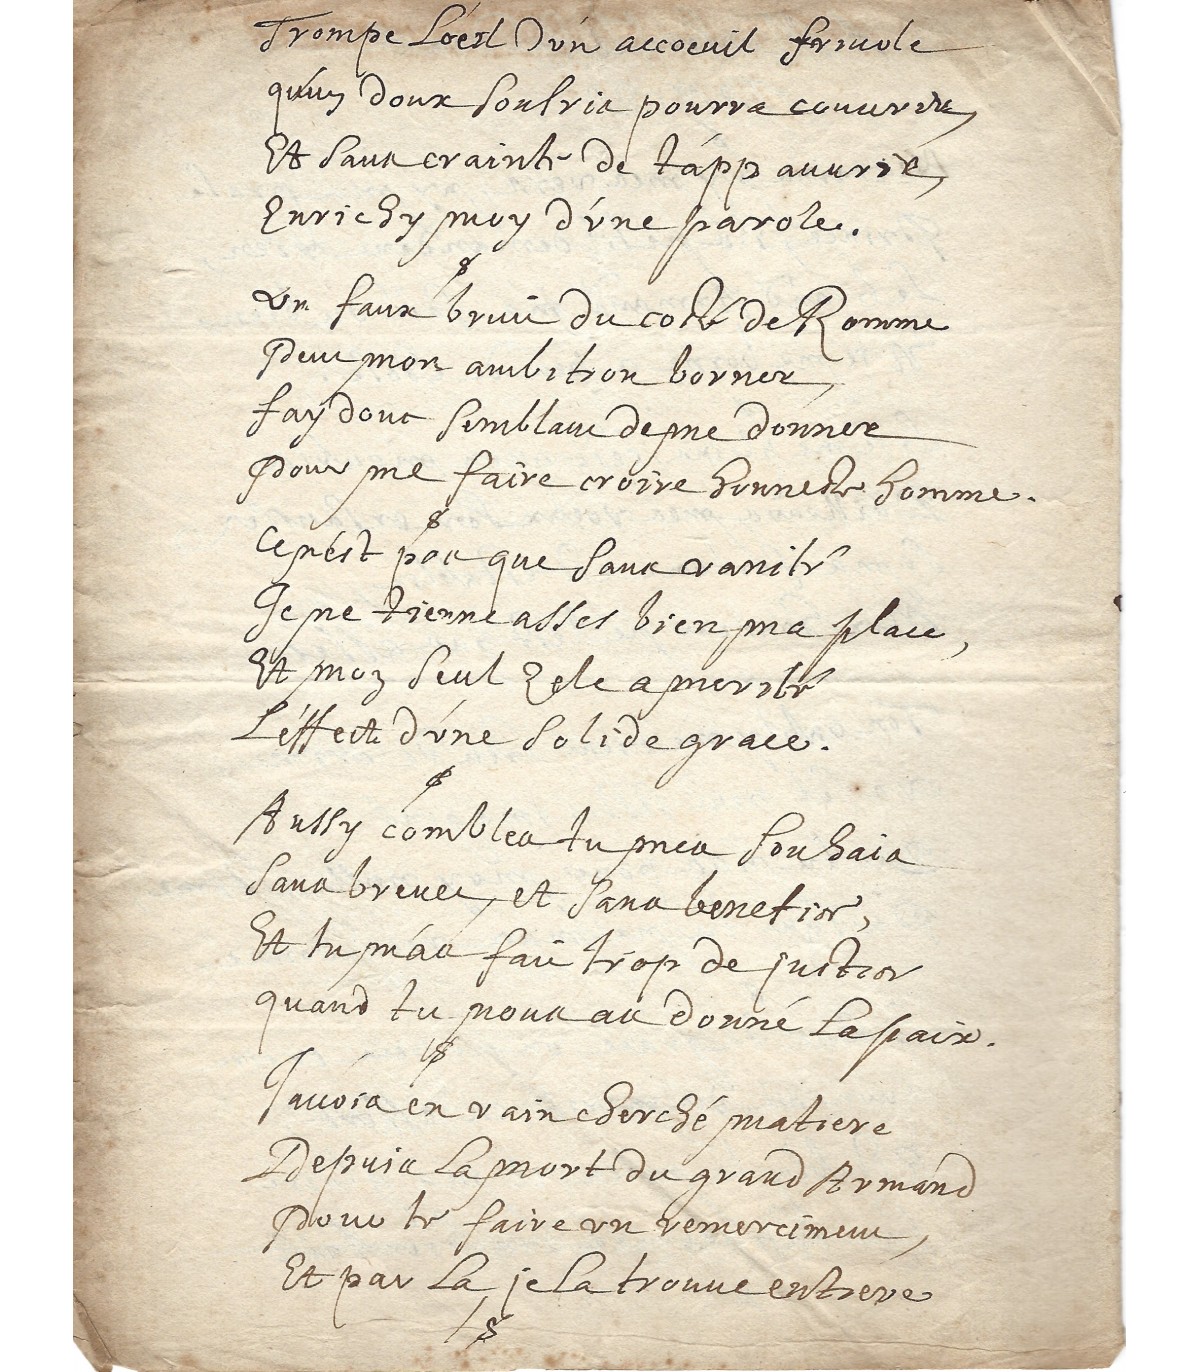 Trompe L'œil d'ún accoeuil friuole
qu'un doux Sousris pourra couurir,
Et Sans crainte de t'appauurir,
Enrichy moy d'vne parole.
Vn faux bruit du costé de Romme
Peut mon ambition borner,
fay donc Semblant de me donner
Pour me faire croire honneste homme.
Ce n'est pas que Sans vanité
Je ne tienne asses bien ma place,
Et mon Seul Zele a merité
L'effect d'vne Solide grace.
Aussy combles tu mes Souhais
Sans brevet, et Sans benefice,
Et tu m'as fait trop de justice
quand tu nous as donné La paix.
J'auois en vain cherché matiere
Depuis La mort du grand Armand
Pour te faire vn remerciment,
Et par La je La trouue entiere